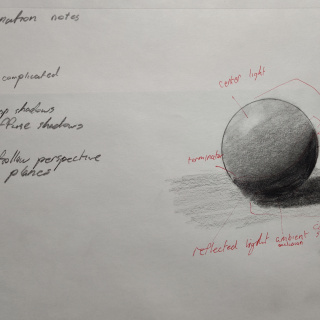 notes
complicated
shadows
shadows
follow perspective
planes
center light
terminator
reflected light ambient
occlusion